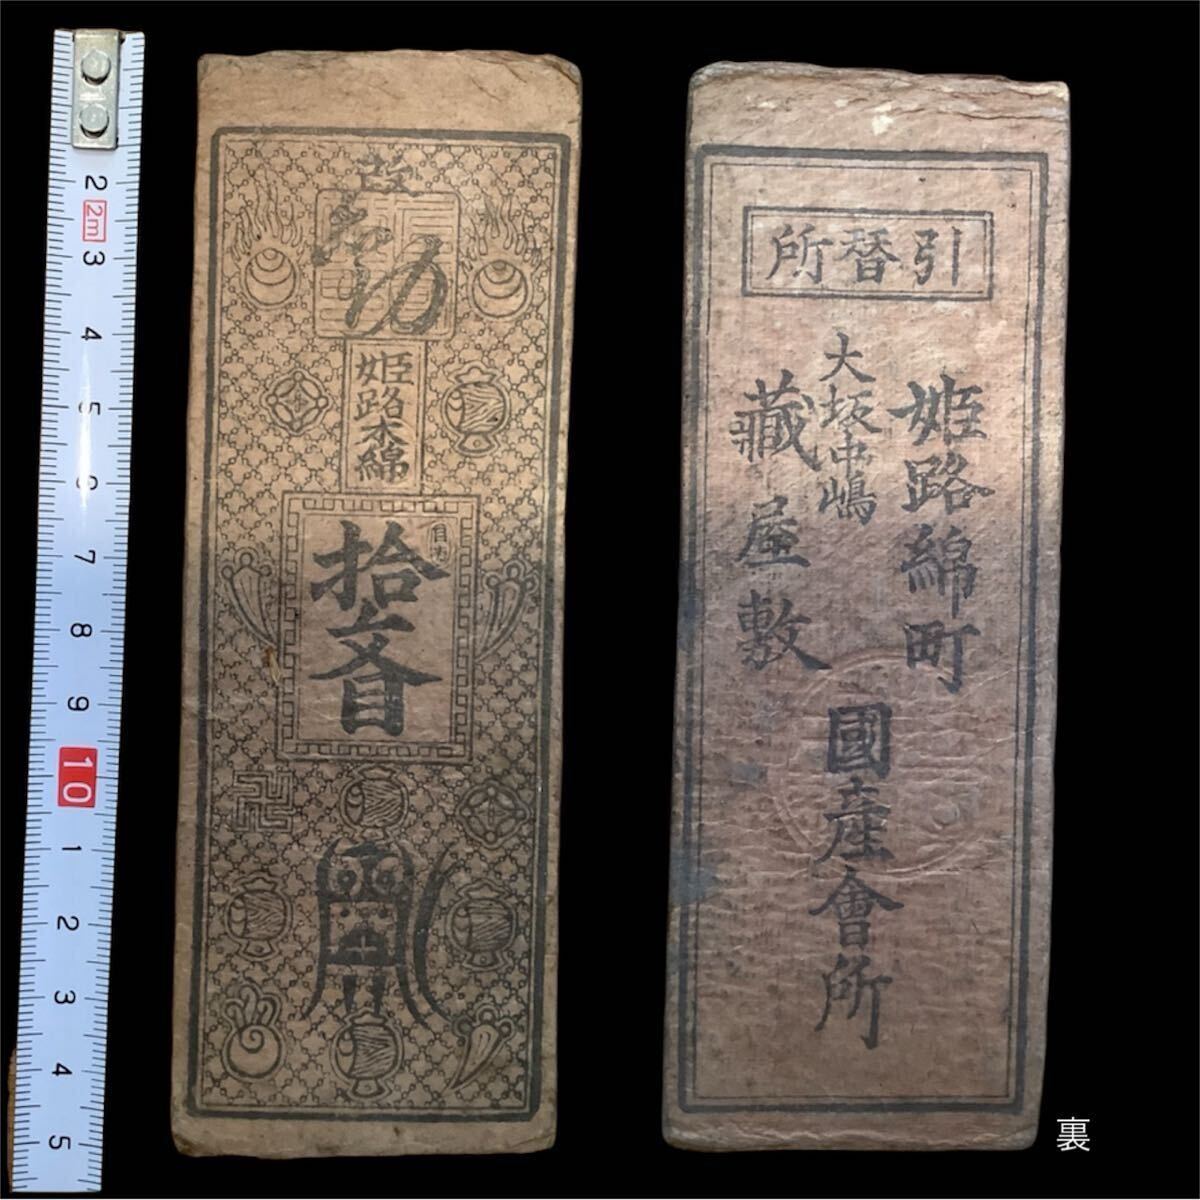 2
2m
3
4
5
6
7
8
9
10
1
2
3
4
5
改
姫路木綿
拾匁
引替所
姫路綿町
大坂中嶋
藏屋敷
國産會所
裏